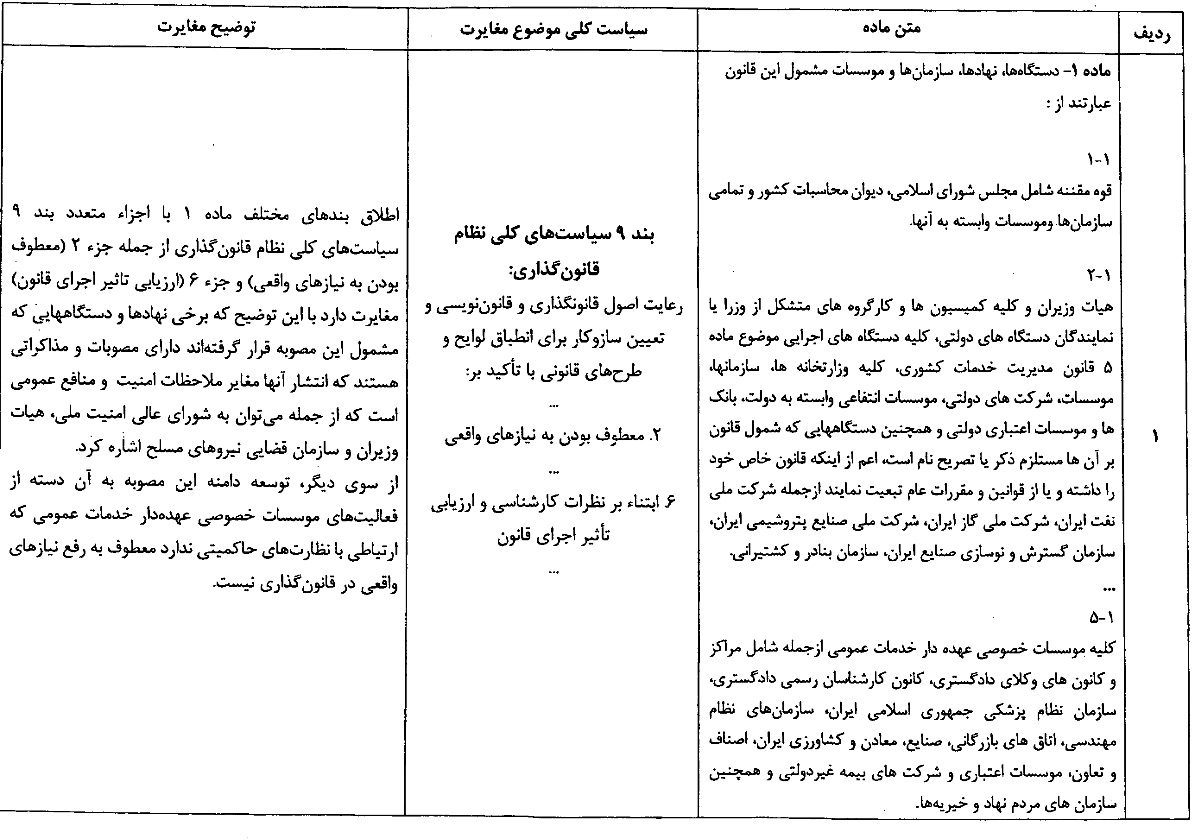 ردیف
متن ماده
سیاست کلی موضوع مغایرت
توضیح مغایرت
۱
ماده ۱- دستگاه‌ها، نهادها، سازمان‌ها و موسسات مشمول این قانون
عبارتند از :
۱-۱
قوه مقننه شامل مجلس شورای اسلامی، دیوان محاسبات کشور و تمامی
سازمان‌ها وموسسات وابسته به آنها.
۲-۱
هیات وزیران و کلیه کمیسیون ها و کارگروه های متشکل از وزرا یا
نمایندگان دستگاه های دولتی، کلیه دستگاه های اجرایی موضوع ماده
۵ قانون مدیریت خدمات کشوری، کلیه وزارتخانه ها، سازمانها،
موسسات، شرکت های دولتی، موسسات انتفاعی وابسته به دولت، بانک
ها و موسسات اعتباری دولتی و همچنین دستگاههایی که شمول قانون
بر آن ها مستلزم ذکر یا تصریح نام است، اعم از اینکه قانون خاص خود
را داشته و یا از قوانین و مقررات عام تبعیت نمایند ازجمله شرکت ملی
نفت ایران، شرکت ملی گاز ایران، شرکت ملی صنایع پتروشیمی ایران،
سازمان گسترش و نوسازی صنایع ایران، سازمان بنادر و کشتیرانی.
...
۵-۱
کلیه موسسات خصوصی عهده دار خدمات عمومی ازجمله شامل مراکز
و کانون های وکلای دادگستری، کانون کارشناسان رسمی دادگستری،
سازمان نظام پزشکی جمهوری اسلامی ایران، سازمان‌های نظام
مهندسی، اتاق های بازرگانی، صنایع، معادن و کشاورزی ایران، اصناف
و تعاون، موسسات اعتباری و شرکت های بیمه غیردولتی و همچنین
سازمان های مردم نهاد و خیریه‌ها.
بند ۹ سیاست‌های کلی نظام
قانون‌گذاری:
رعایت اصول قانونگذاری و قانون‌نویسی و
تعیین سازوکار برای انطباق لوایح و
طرح‌های قانونی با تأکید بر:
...
۲. معطوف بودن به نیازهای واقعی
...
۶ ابتناء بر نظرات کارشناسی و ارزیابی
تأثیر اجرای قانون
...
اطلاق بندهای مختلف ماده ۱ با اجزاء متعدد بند ۹
سیاست‌های کلی نظام قانون‌گذاری از جمله جزء ۲ (معطوف
بودن به نیازهای واقعی) و جزء ۶ (ارزیابی تاثیر اجرای قانون)
مغایرت دارد با این توضیح که برخی نهادها و دستگاههایی که
مشمول این مصوبه قرار گرفته‌اند دارای مصوبات و مذاکراتی
هستند که انتشار آنها مغایر ملاحظات امنیت و منافع عمومی
است که از جمله می‌توان به شورای عالی امنیت ملی، هیات
وزیران و سازمان قضایی نیروهای مسلح اشاره کرد.
از سوی دیگر، توسعه دامنه این مصوبه به آن دسته از
فعالیت‌های موسسات خصوصی عهده‌دار خدمات عمومی که
ارتباطی با نظارت‌های حاکمیتی ندارد معطوف به رفع نیازهای
واقعی در قانون‌گذاری نیست.